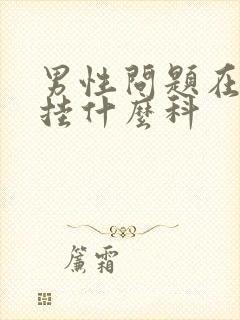 男性問題在
挂什麼科
簾霜